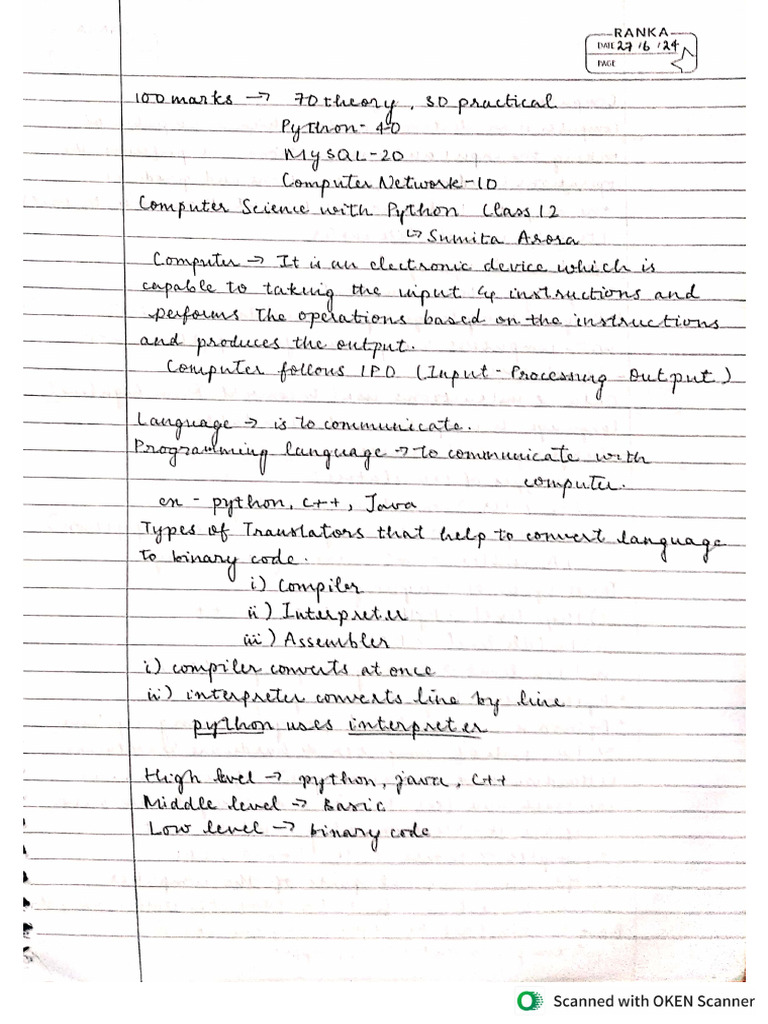 RANKA
DATE 27/6/24
PAGE
100 marks → 70 theory, 30 practical
Python - 40
MySQL - 20
Computer Network - 10
Computer Science with Python Class 12
↳ Sumita Arora
Computer → It is an electronic device which is
capable to taking the input & instructions and
performs the operations based on the instructions
and produces the output.
Computer follows IPO (Input - Processing Output)
Language → is to communicate.
Programming language → to communicate with
computer.
ex - python, C++, Java
Types of Translators that help to convert language
to binary code.
i) Compiler
ii) Interpreter
iii) Assembler
i) compiler converts at once
ii) interpreter converts line by line
python uses interpreter
High level → python, java, C++
Middle level → Basic
Low level → binary code
Scanned with OKEN Scanner